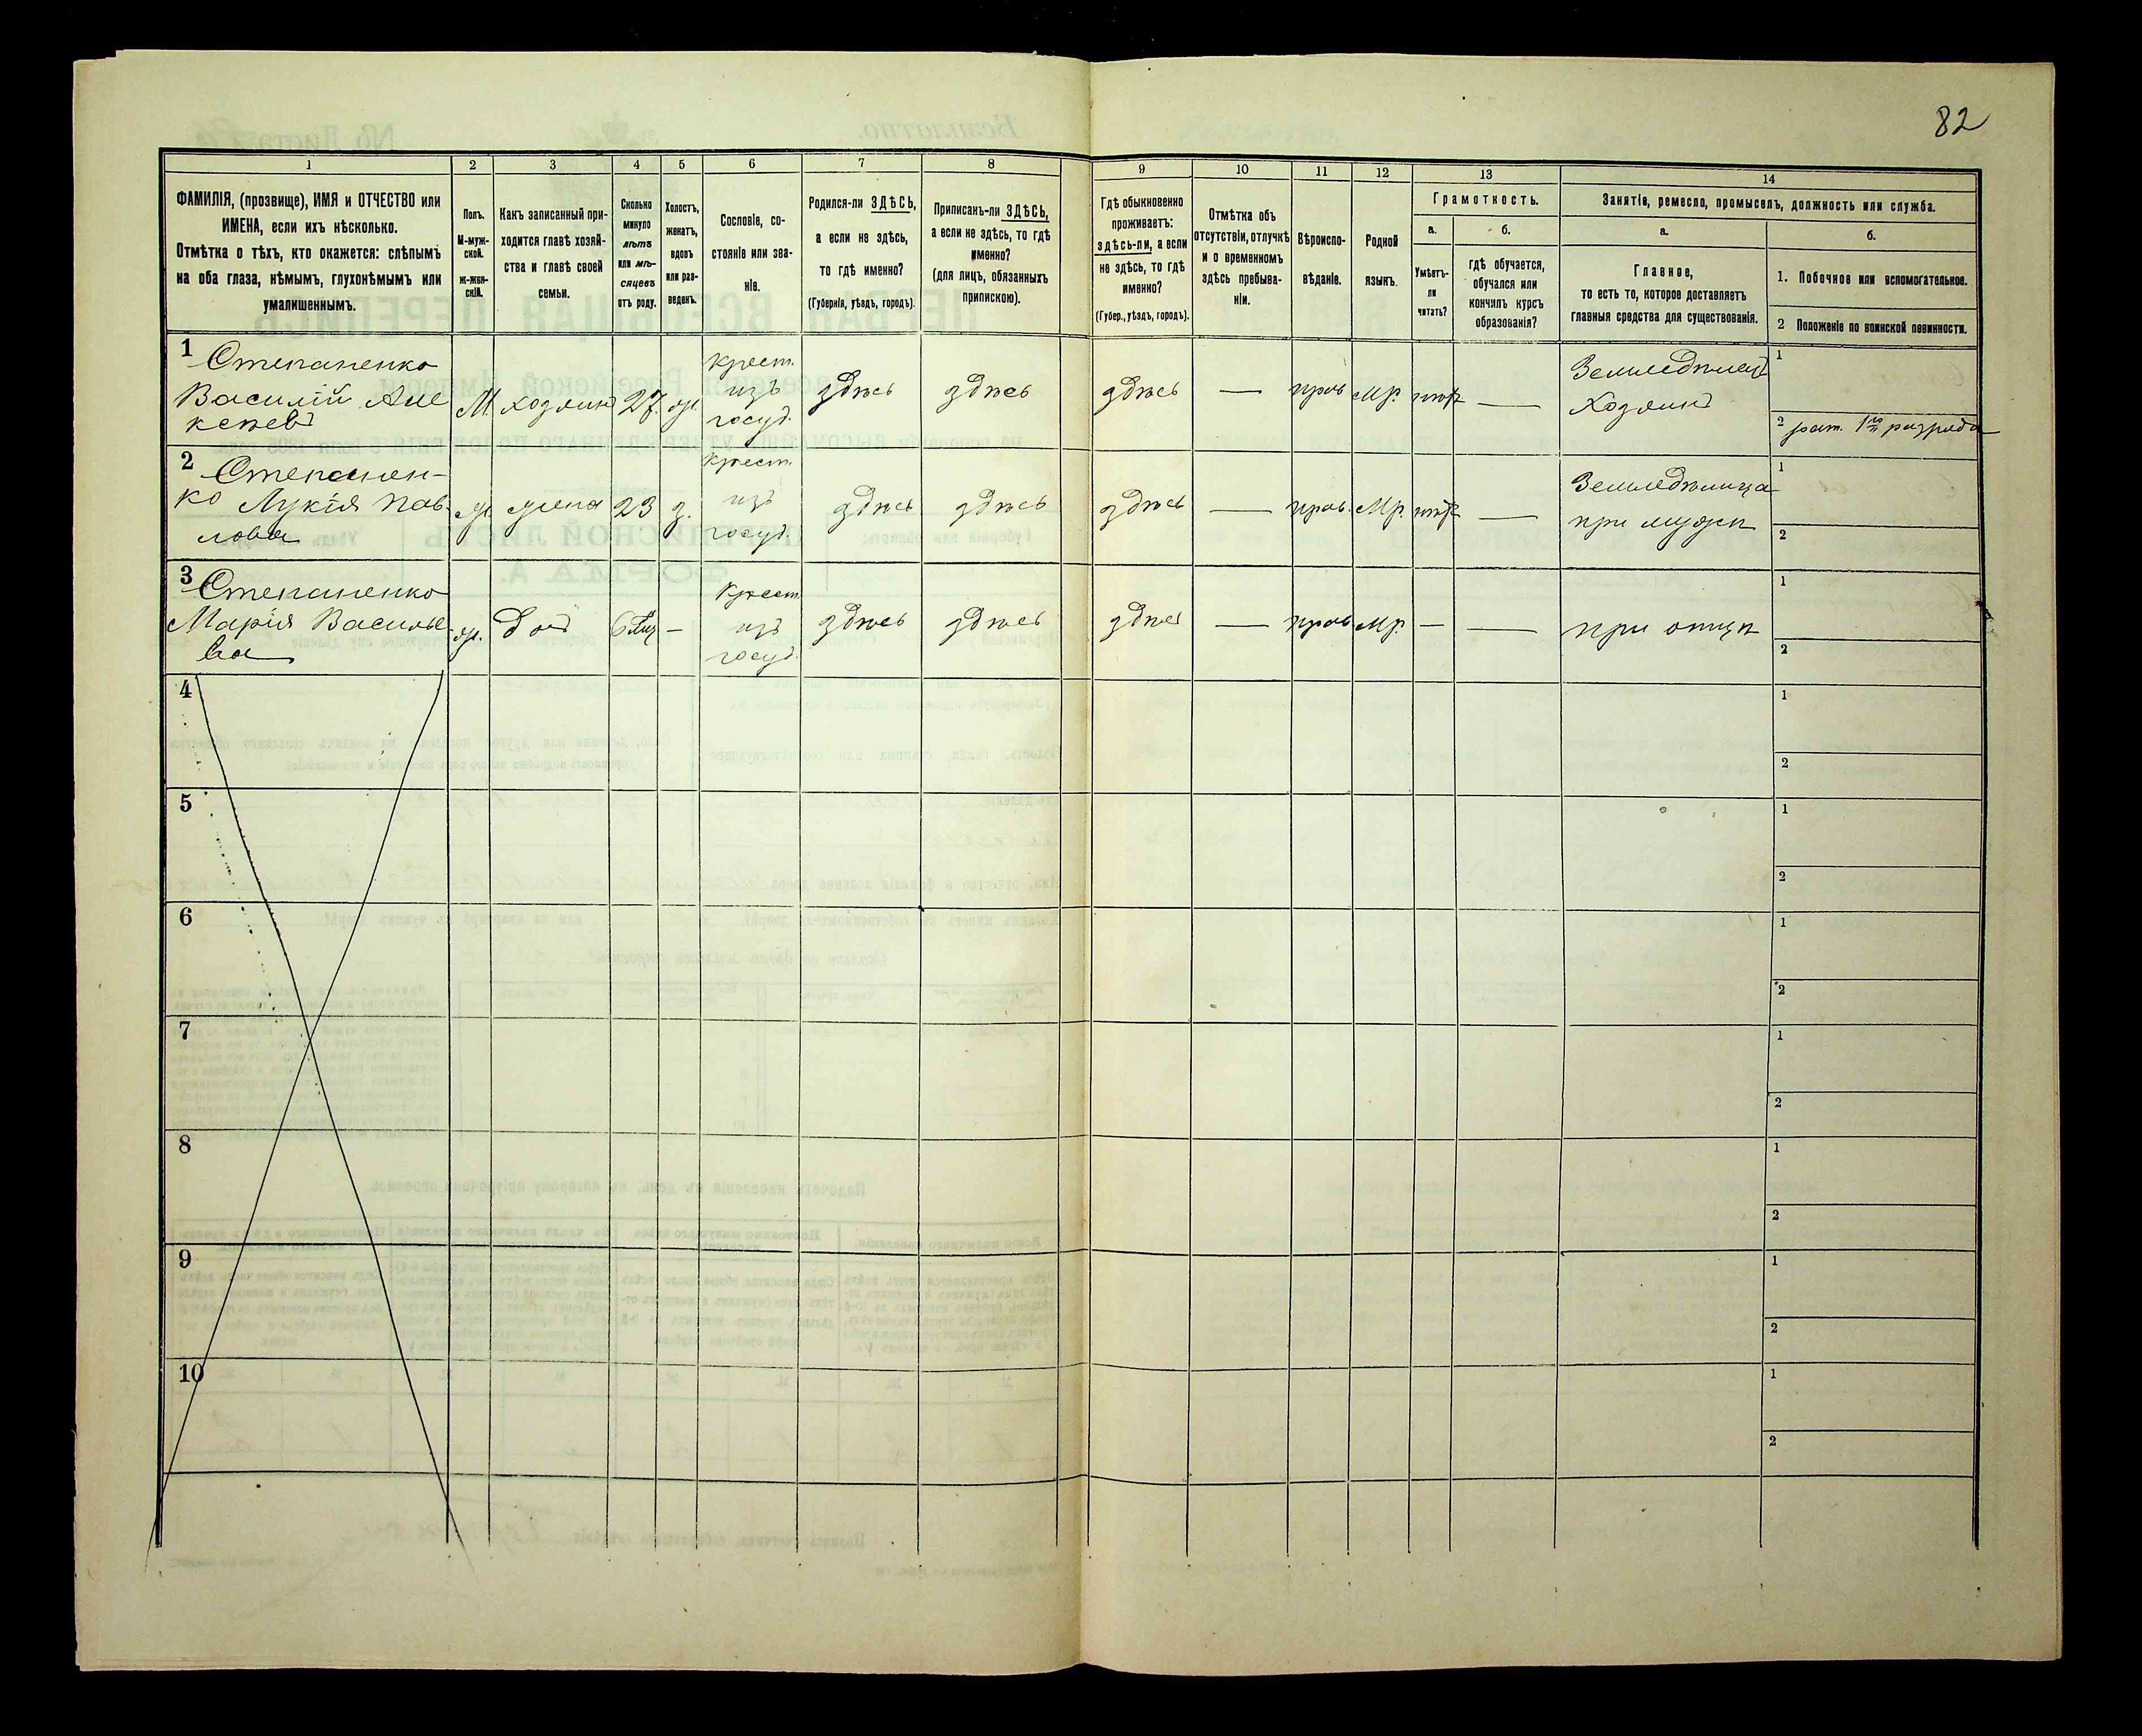 82
1 2 3 4 5 6 7 8 9 10 11 12 13 14
ФАМИЛІЯ, (прозвище), ИМЯ и ОТЧЕСТВО или
ИМЕНА, если ихъ нѣсколько.
Отмѣтка о тѣхъ, кто окажется: слѣпымъ
на оба глаза, нѣмымъ, глухонѣмымъ или
умалишеннымъ.
Полъ.
М-муж-
ской.
ж-жен-
скій.
Какъ записанный при-
ходится главѣ хозяй-
ства и главѣ своей
семьи.
Сколько
минуло
лѣтъ
или мѣ-
сяцевъ
отъ роду.
Холостъ,
женатъ,
вдовъ
или раз-
веденъ.
Сословіе, со-
стояніе или зва-
ніе.
Родился-ли ЗДѢСЬ,
а если не здѣсь,
то гдѣ именно?
(Губернія, уѣздъ, городъ).
Приписанъ-ли ЗДѢСЬ,
а если не здѣсь, то гдѣ
именно?
(для лицъ, обязанныхъ
припискою).
Гдѣ обыкновенно
проживаетъ:
здѣсь-ли, а если
не здѣсь, то гдѣ
именно?
(Губер., уѣздъ, городъ).
Отмѣтка объ
отсутствіи, отлучкѣ
и о временномъ
здѣсь пребыва-
ніи.
Вѣроиспо-
вѣданіе.
Родной
языкъ.
Грамотность.
а.
Умѣетъ-
ли
читать?
б.
гдѣ обучается,
обучался или
кончилъ курсъ
образованія?
Занятіе, ремесло, промыселъ, должность или служба.
а.
Главное,
то есть то, которое доставляетъ
главныя средства для существованія.
б.
1. Побочное или вспомогательное.
2 Положеніе по воинской повинности.
1 Степаненко
Василій Але
ксѣевъ
М. хозяинъ 27. ж.
крест.
изъ
госуд.
здѣсь здѣсь здѣсь — прав. Мр. нѣтъ —
Земледѣлецъ
Хозяинъ
1
2 рат. 1го разряда
2 Степанен-
ко Лукія Пав-
лова
ж. жена 23 з.
крест.
изъ
госуд.
здѣсь здѣсь здѣсь — прав. Мр. нѣтъ —
Земледѣлица
при мужѣ
1
2
3 Степаненко
Марія Василье
ва
ж. доч 6 Мц —
крест.
изъ
госуд.
здѣсь здѣсь здѣсь — прав. Мр. — —
при отцѣ
1
2
4
1
2
5
1
2
6
1
2
7
1
2
8
1
2
9
1
2
10
1
2